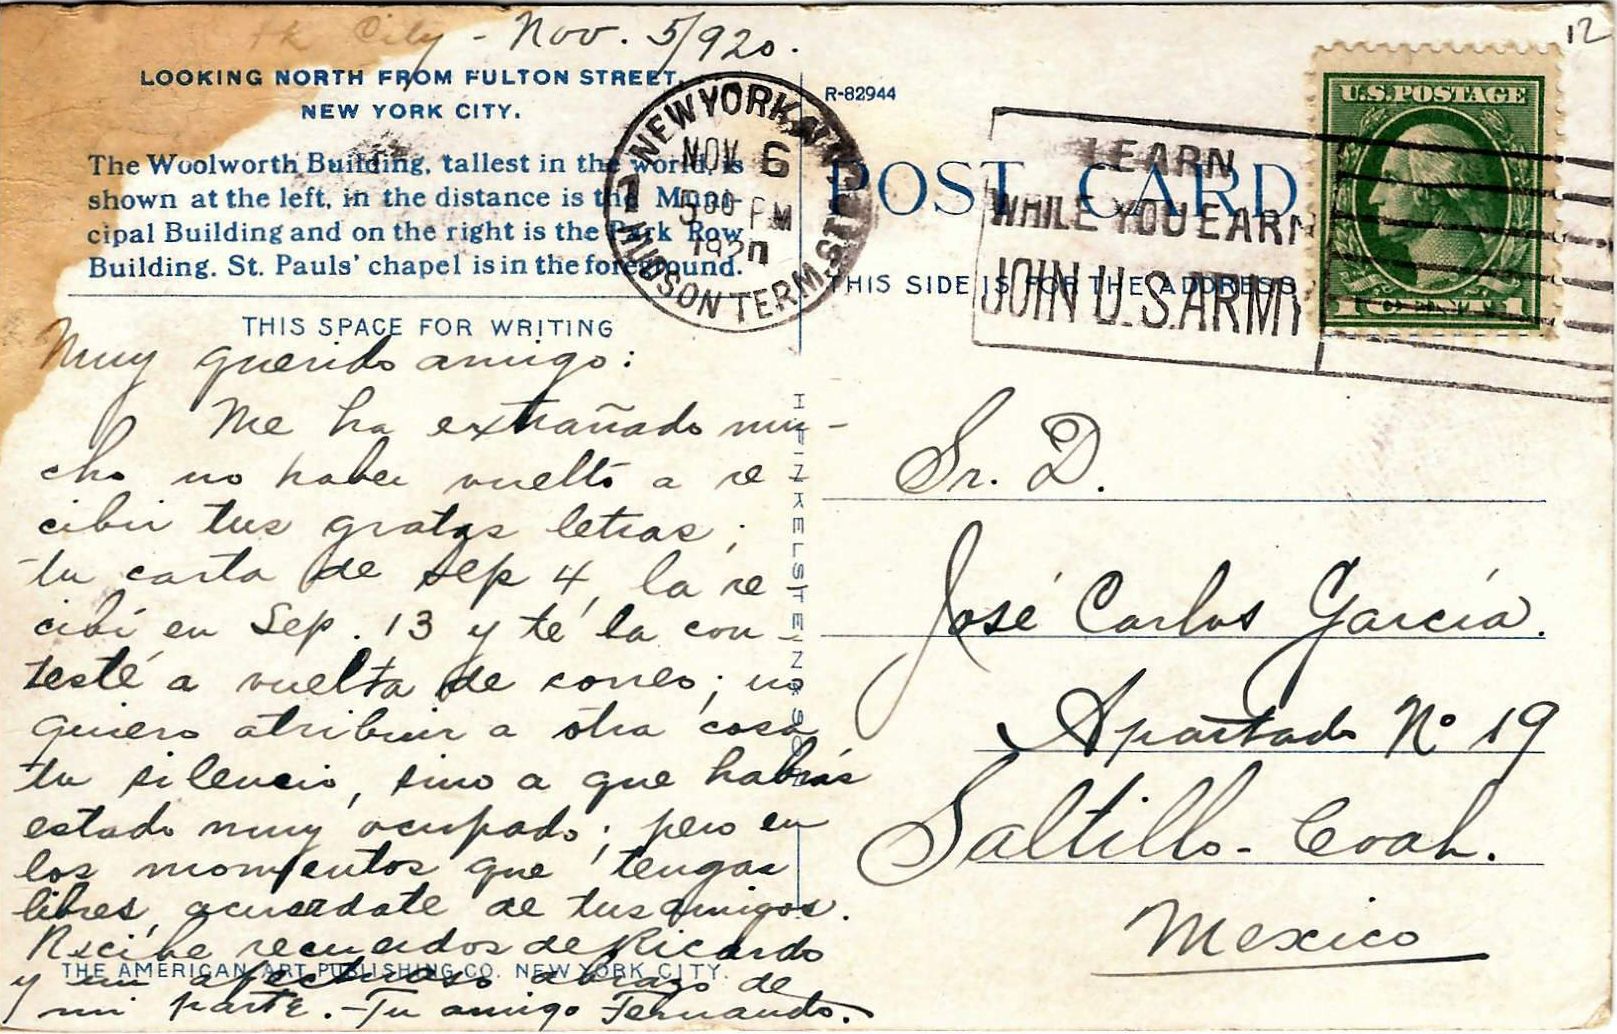 City - Nov. 5/920.
12
LOOKING NORTH FROM FULTON STREET,
NEW YORK CITY.
The Woolworth Building, tallest in the world, is
shown at the left, in the distance is the Muni-
cipal Building and on the right is the Park Row
Building. St. Pauls' chapel is in the foreground.
THIS SPACE FOR WRITING
Muy querido amigo:
Me ha extrañado mu-
cho no haber vuelto a re
cibir tus gratas letras;
tu carta de Sep 4, la re
cibí en Sep. 13 y té la con
testé a vuelta de correo; no
quiero atribuir a otra cosa
tu silencio, sino a que habrás
estado muy ocupado; pero en
los momentos que tengas
libres, acuerdate de tus amigos.
Recibe recuerdos de Ricardo
y un afectuoso abrazo de
mi parte. - Tu amigo Fernando.
THE AMERICAN ART PUBLISHING CO. NEW YORK CITY.
H. FINKELSTEIN & SON
NEW YORK, N.Y.
NOV 6
5 00 PM
1920
HUDSON TERM. STA.
R-82944
POST CARD
THIS SIDE IS FOR THE ADDRESS
LEARN
WHILE YOU EARN
JOIN U.S. ARMY
U.S. POSTAGE
1 CENT 1
Sr. D.
José Carlos García.
Apartado Nº 19
Saltillo - Coah.
Mexico